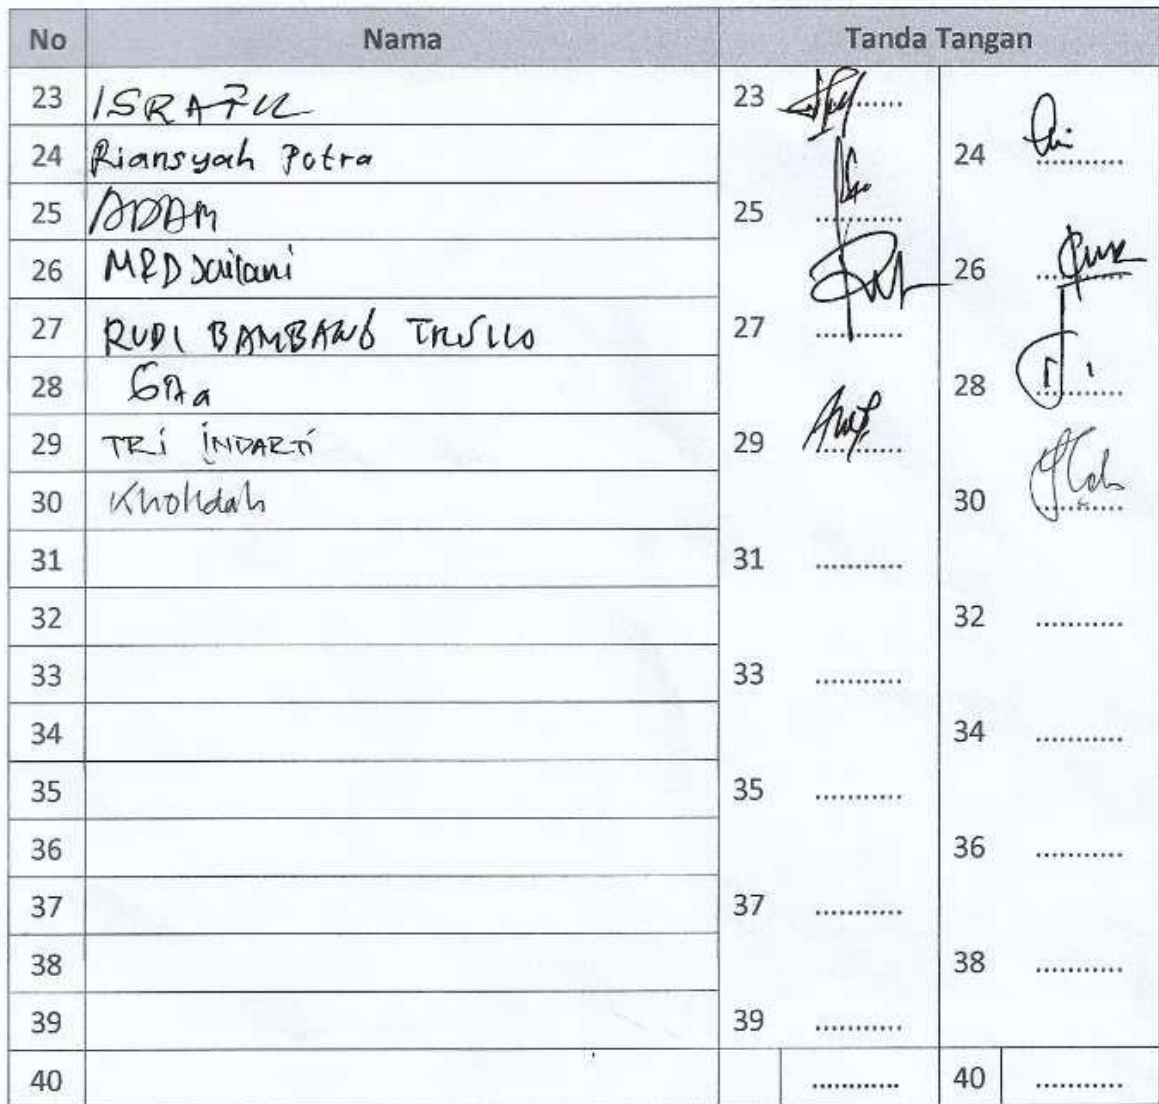 No Nama Tanda Tangan
23 23 ...........
24 Riansyah Putra 24 ...........
25 ADAM 25 ...........
26 MRD Jailani 26 ...........
27 RUDI BAMBANG 27 ...........
28 28 ...........
29 TRI INDARTI 29 ...........
30 Kholidah 30 ...........
31 31 ...........
32 32 ...........
33 33 ...........
34 34 ...........
35 35 ...........
36 36 ...........
37 37 ...........
38 38 ...........
39 39 ...........
40 ........... 40 ...........